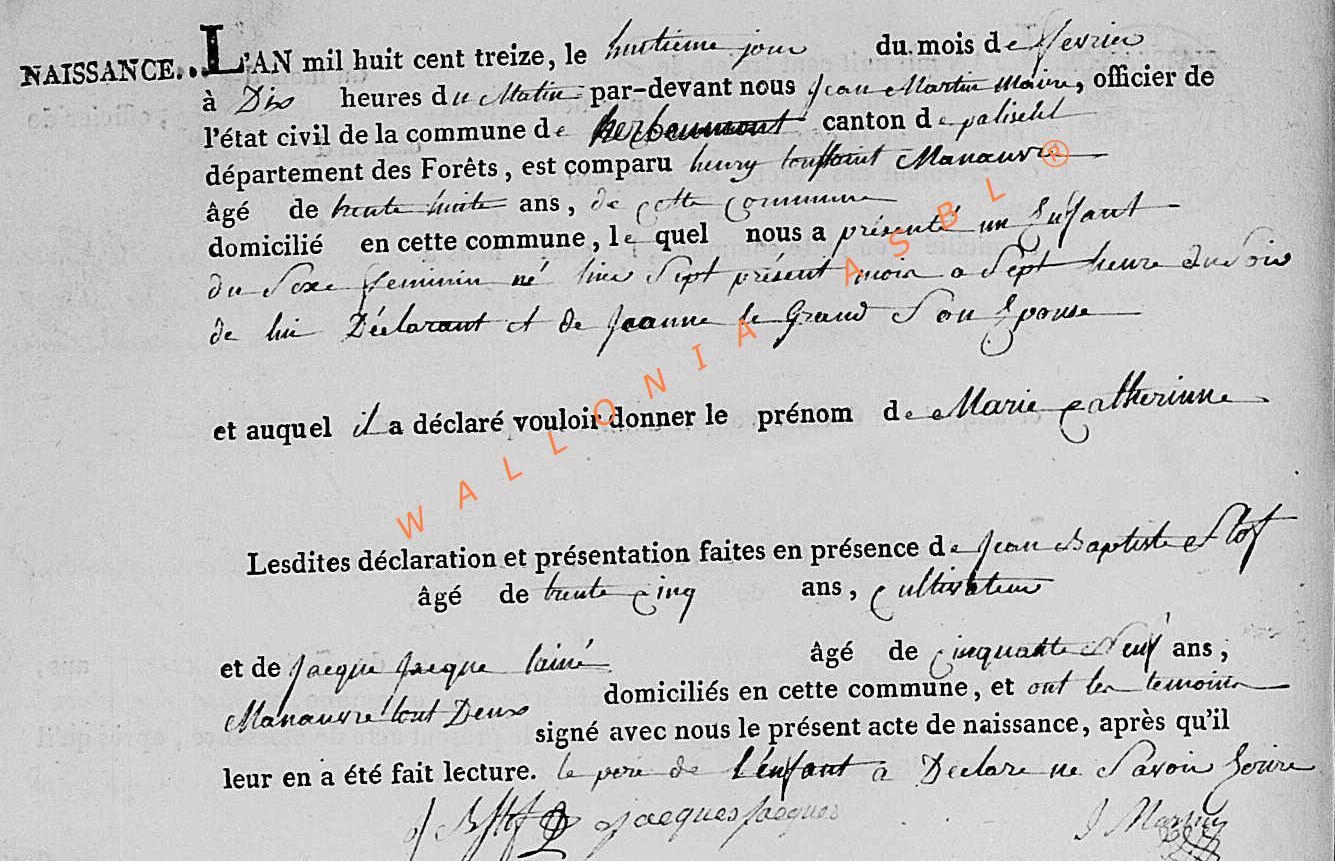 NAISSANCE... L'AN mil huit cent treize, le huitieme jour du mois de fevrier
à Dix heures du Matin par-devant nous Jean Martin Maire, officier de
l'état civil de la commune de herbeumont canton de paliseul
département des Forêts, est comparu henry toussaint Manœuvre
âgé de trente huite ans, de cette commune
domicilié en cette commune, le quel nous a présenté un Enfant
du Sexe feminin né hier Sept présent mois a Sept heure du Soir
de lui Déclarant et de Jeanne le Grand Son Epouse
et auquel il a déclaré vouloir donner le prénom de Marie Catherinne
Lesdites déclaration et présentation faites en présence de Jean Baptiste
âgé de trente cinq ans, Cultivateur
et de Jacque Jacque lainé âgé de cinquante Neuf ans,
Manœuvre tout Deux domiciliés en cette commune, et ont les temoins
signé avec nous le présent acte de naissance, après qu'il
leur en a été fait lecture. le pere de l'enfant a Déclaré ne Savoir Ecrire
Jacques Jacques J Martin
WALLONIA ASBL ®